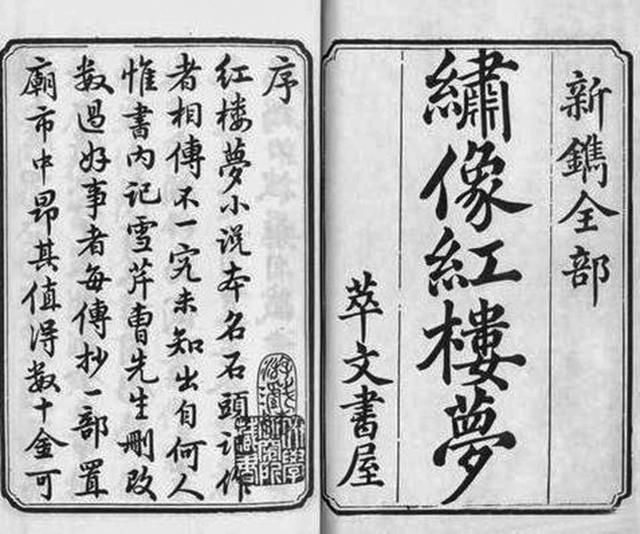 新鐫全部
繡像紅樓夢
萃文書屋
序
紅楼夢小説本名石頭記作
者相傳不一究未知出自何人
惟書内記雪芹曹先生刪改
数過好事者每傳抄一部置
廟市中昂其值得数十金可